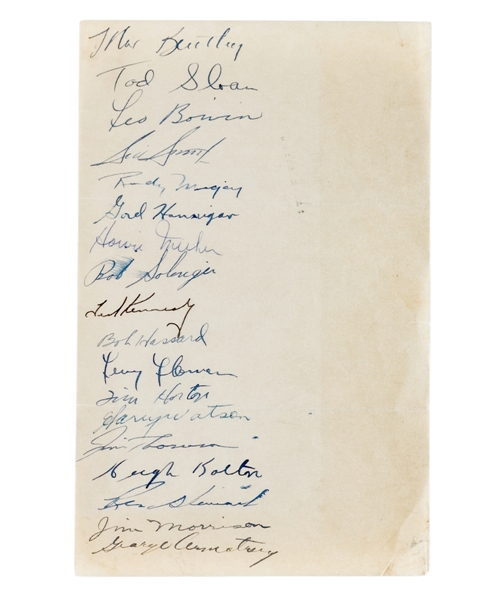 Max Bentley
Tod Sloan
Leo Boivin
Sid Smith
Rudy Migay
Gord Hannigan
Howie Meeker
Bob Solinger
Ted Kennedy
Bob Hassard
Leary Flaman
Tim Horton
Harry Watson
Jim Thomson
Hugh Bolton
Ron Stewart
Jim Morrison
George Armstrong